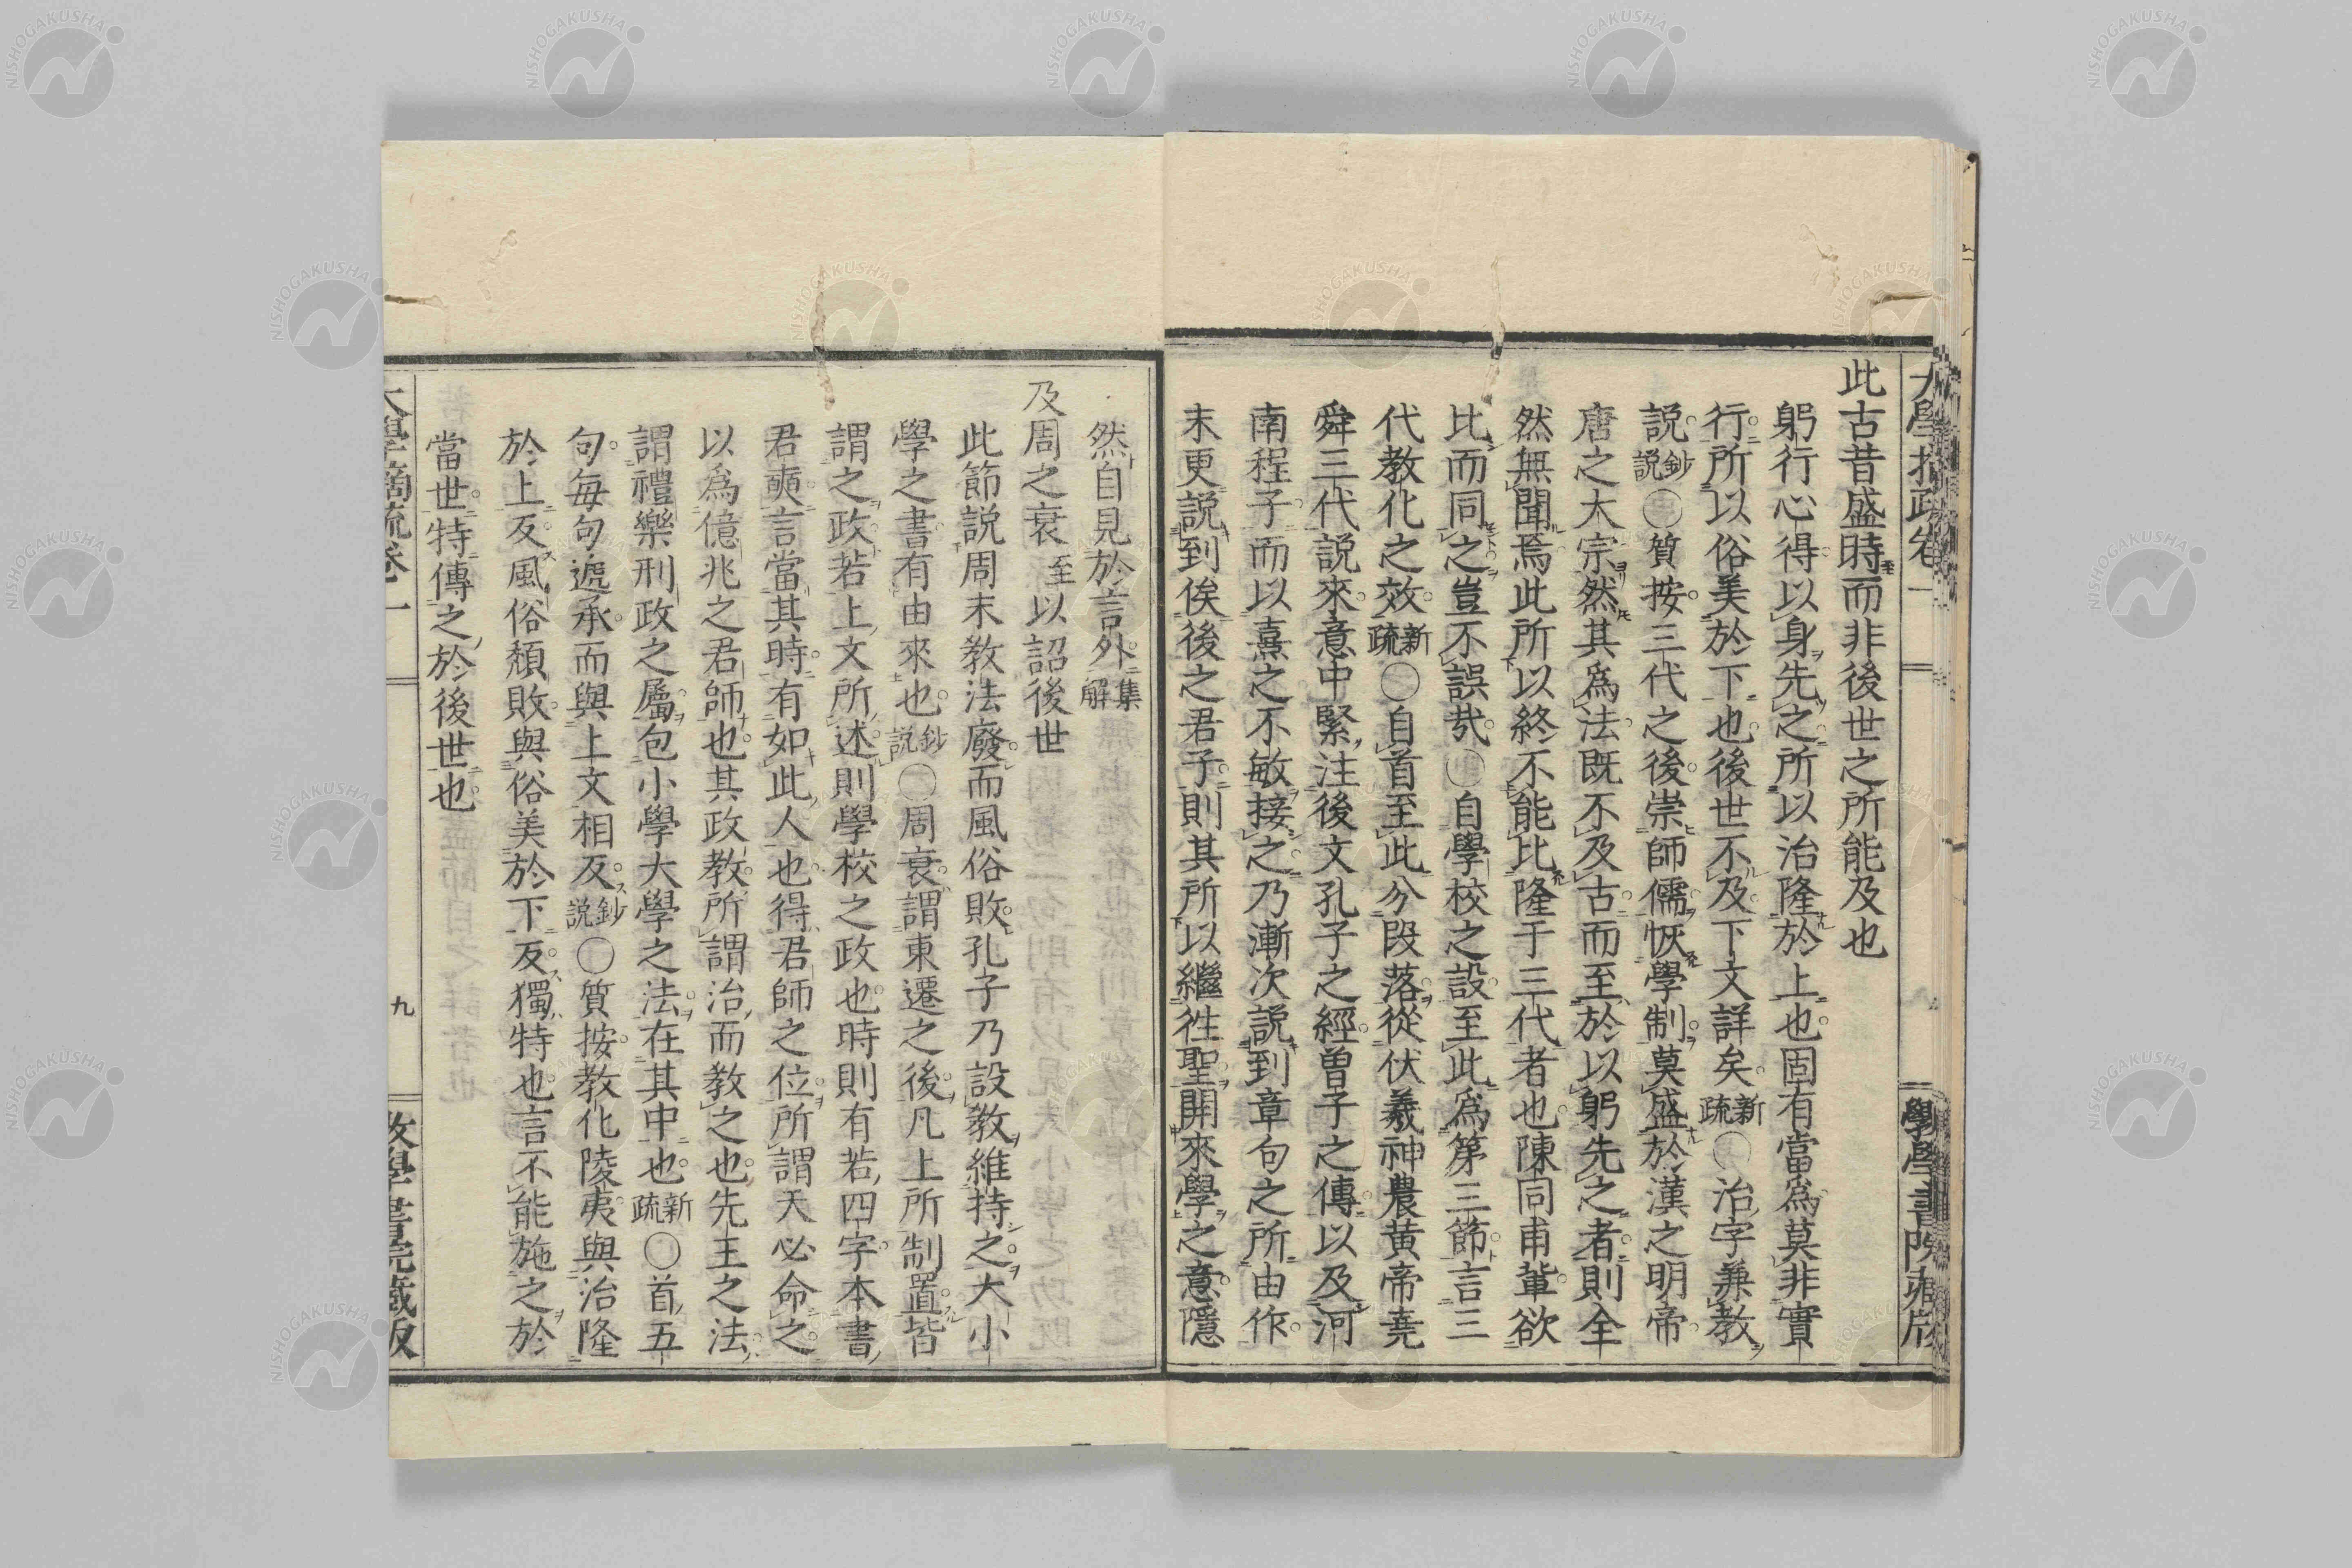 此古昔盛時而非後世之所能及也
躬行心得以身先之所以治隆於上也固有當爲莫非實
行所以俗美於下也後世不及下文詳矣新疏〇治字兼教
説鈔説〇質按三代之後崇師儒恢學制莫盛於漢之明帝
唐之太宗然其爲法既不及古而至於以躬先之者則全
然無聞焉此所以終不能比隆于三代者也陳同甫輩欲
比而同之豈不誤哉〇自學校之設至此爲第三節言三
代教化之效新疏〇自首至此分段落從伏羲神農黄帝堯
舜三代説來意中緊注後文孔子之經曽子之傳以及河
南程子而以熹之不敏接之乃漸次説到章句之所由作
末更説到俟後之君子則其所以繼徃聖開來學之意隱
然自見於言外集解
及周之衰至以詔後世
此節説周末教法廢而風俗敗孔子乃設教維持之大小
學之書有由來也鈔説〇周衰謂東遷之後凡上所制置皆
謂之政若上文所述則學校之政也時則有若四字本書
君奭言當其時有如此人也得君師之位所謂天必命之
以爲億兆之君師也其政教所謂治而教之也先王之法
謂禮樂刑政之屬包小學大學之法在其中也新疏〇首五
句毎句遞承而與上文相反鈔説〇質按教化陵夷與治隆
於上反風俗頽敗與俗美於下反獨特也言不能施之於
當世特傳之於後世也
九
NISHOGAKUSHA